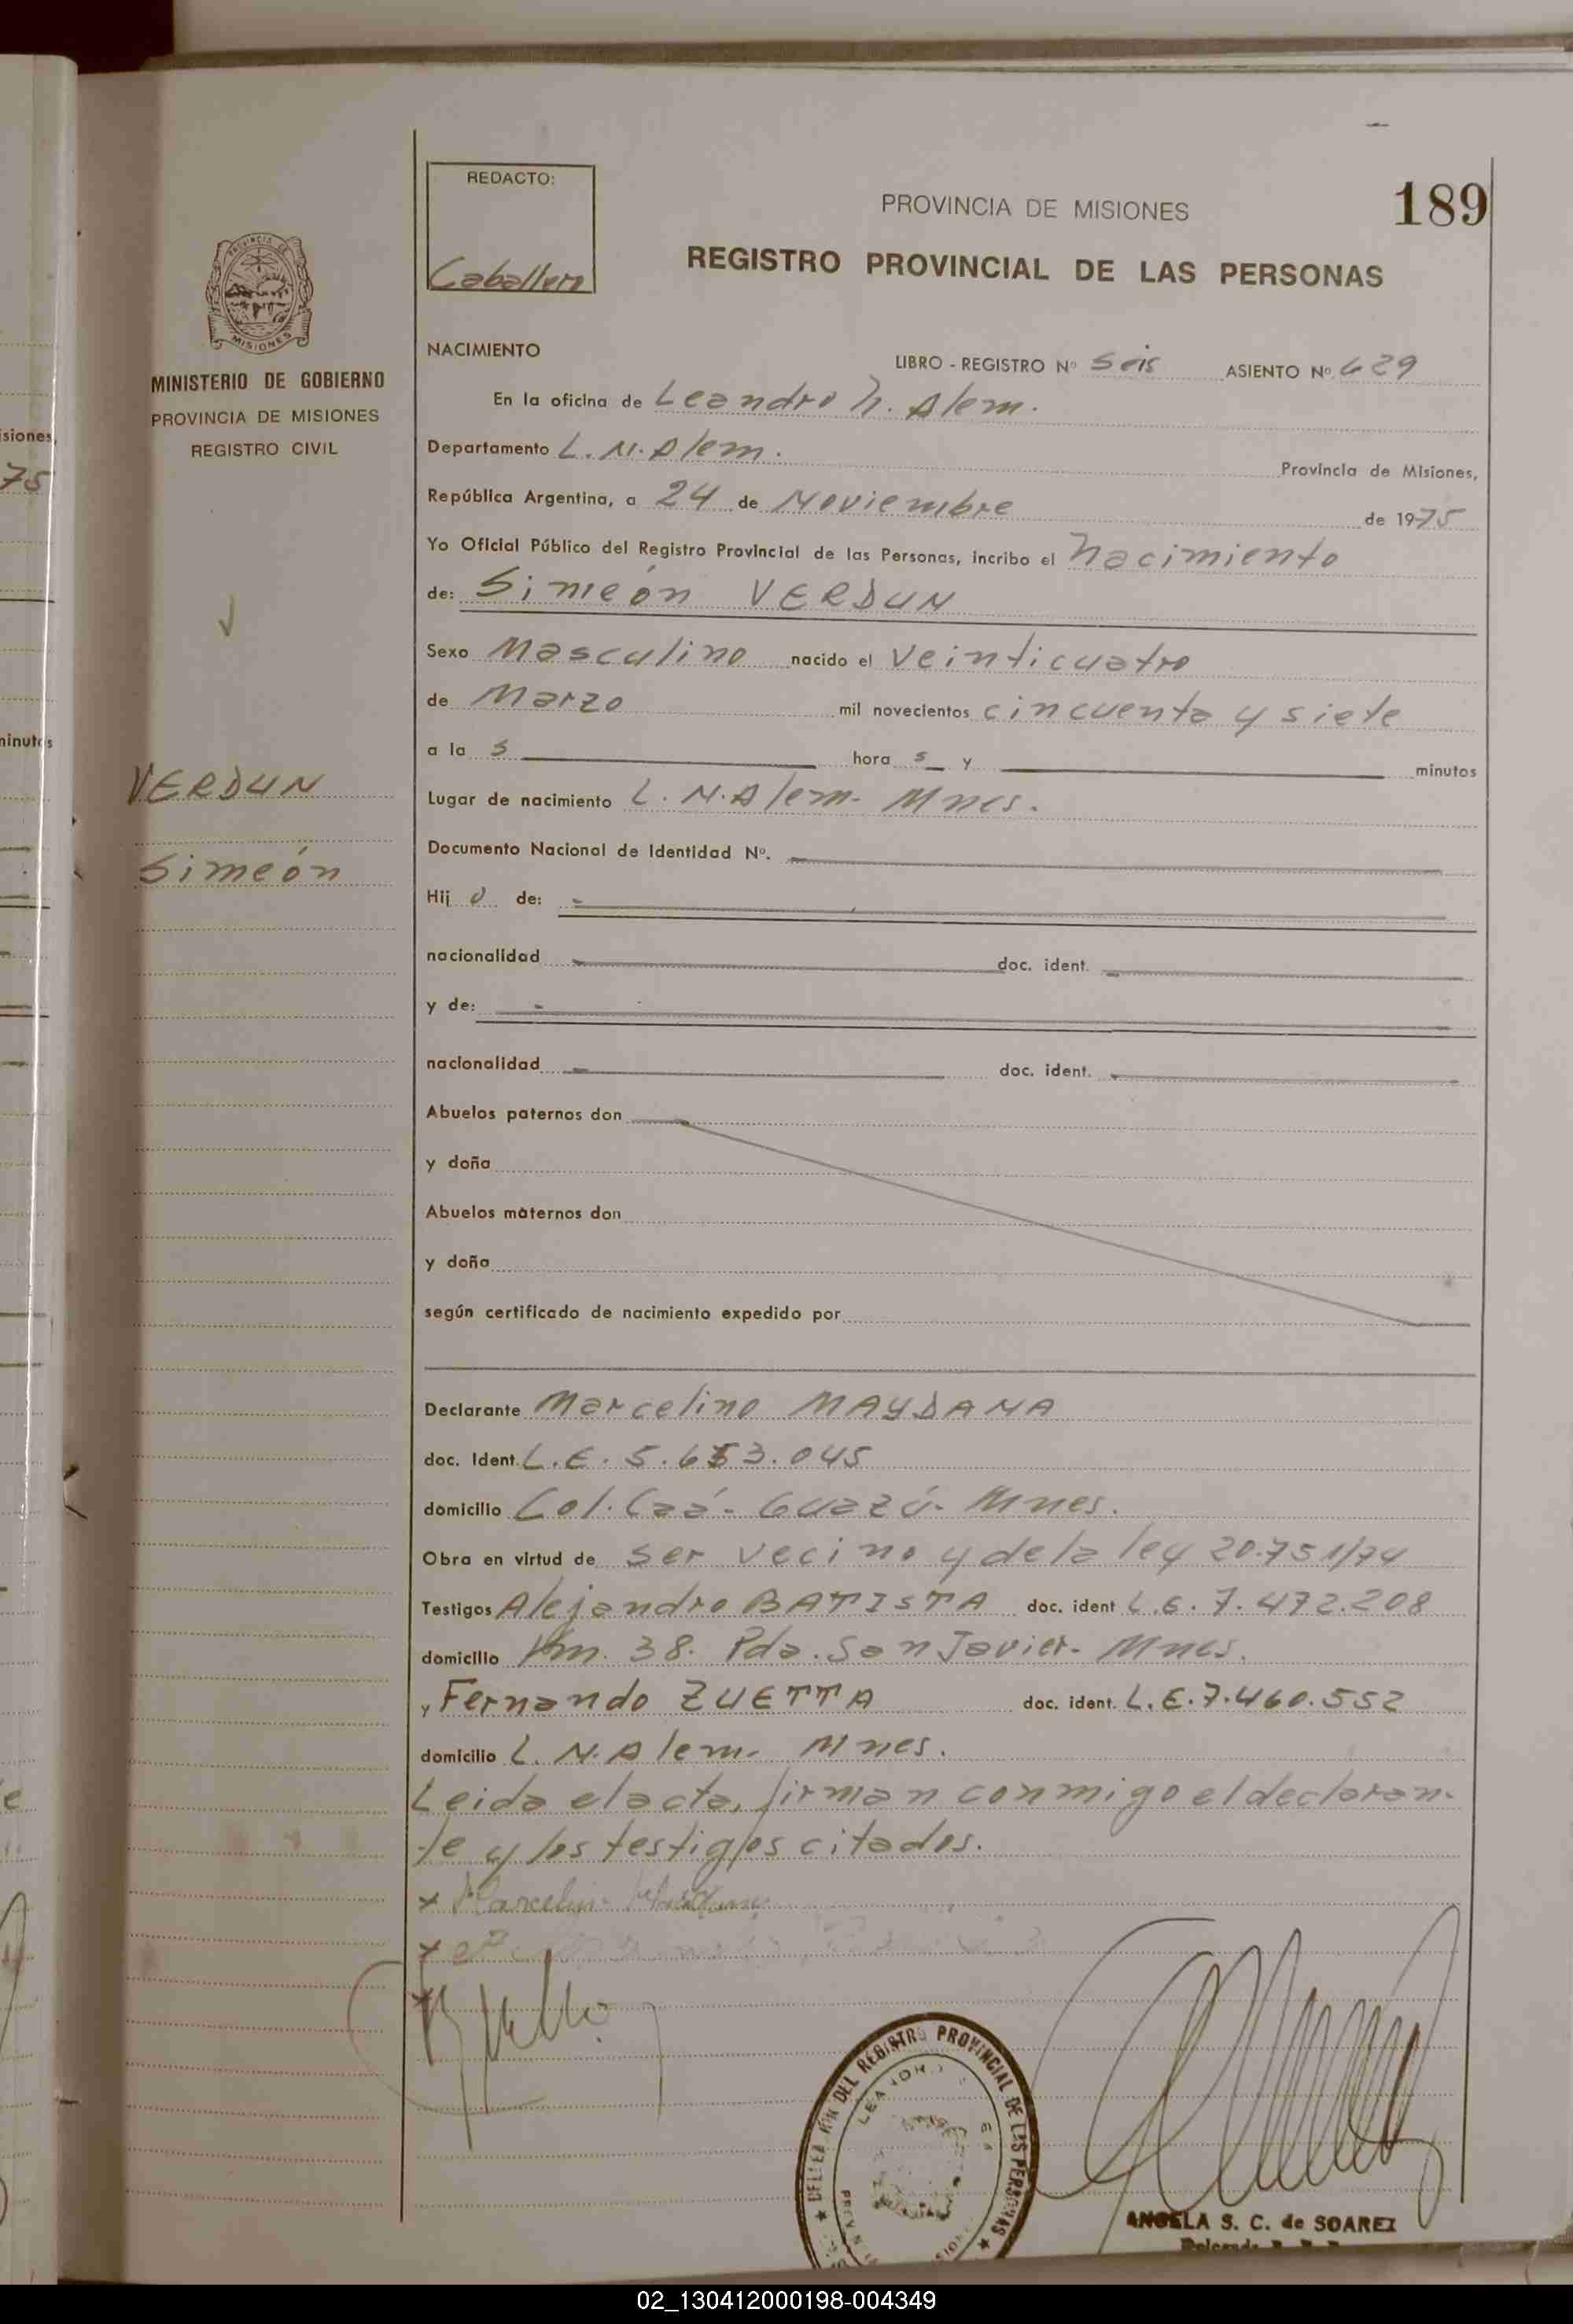 REDACTO:
Caballero
PROVINCIA DE MISIONES
189
REGISTRO PROVINCIAL DE LAS PERSONAS
PROVINCIA DE
MISIONES
MINISTERIO DE GOBIERNO
PROVINCIA DE MISIONES
REGISTRO CIVIL
isiones,
75
minutos
VERDUN
Simeón
NACIMIENTO
LIBRO - REGISTRO Nº Seis ASIENTO Nº 629
En la oficina de Leandro N. Alem.
Departamento L. N. Alem. Provincia de Misiones,
República Argentina, a 24 de Noviembre de 1975
Yo Oficial Público del Registro Provincial de las Personas, incribo el Nacimiento
de: Simeón VERDUN
Sexo Masculino nacido el Veinticuatro
de Marzo mil novecientos cincuenta y siete
a la s hora s y minutos
Lugar de nacimiento L. N. Alem- Mnes.
Documento Nacional de Identidad Nº.
Hij o de:
nacionalidad doc. ident.
y de:
nacionalidad doc. ident.
Abuelos paternos don
y doña
Abuelos maternos don
y doña
según certificado de nacimiento expedido por
Declarante Marcelino MAYDANA
doc. Ident. L.E. 5.653.045
domicilio Col. Caá- Guazú- Mnes.
Obra en virtud de ser vecino y de la ley 20.751/74
Testigos Alejandro BATISTA doc. ident L.E. 7.472.208
domicilio Km. 38. Pda. San Javier- Mnes.
y Fernando ZUETTA doc. ident. L.E. 7.460.552
domicilio L. N. Alem- Mnes.
Leida el acta, firman conmigo el declaran-
te y los testigos citados.
x Marcelino Maidana
x
x
DEL REGISTRO PROVINCIAL DE LAS PERSONAS
ANGELA S. C. de SOAREZ
02_130412000198-004349